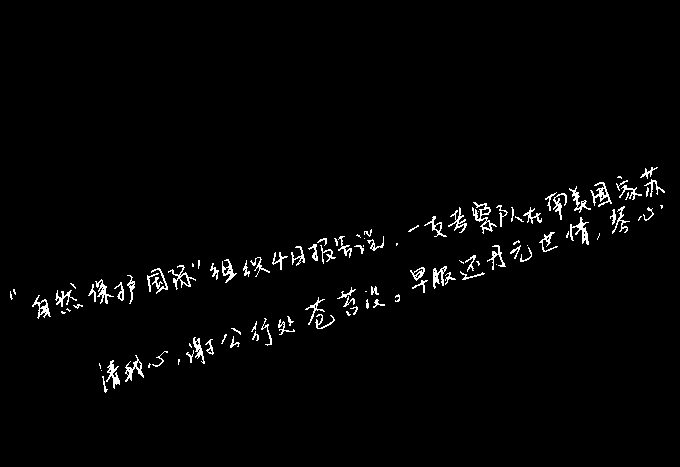 "自然保护国际"组织4日报告说,一支考察队在南美国家苏
清我心,谢公行处苍苔没。早服还丹无世情,琴心